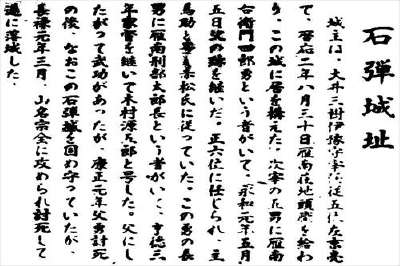 石弾城址
城主は、大井三樹伊豫守
て、暦応二年八月三十日雁南庄地頭職を給わ
り、この城に居を構えた。次
右衛門四郎男という者がいて、永和元年五月
五日父の跡を継いだ。正六位に任じられ、主
馬助と号し赤松氏に従っていた。この男の長
男に雁南刑部太郎長という者がいて、享徳三
年家督を継いで木村源五郎と号した。父にし
たがって武功があったが、康正元年父男討死
の後、なおこの石弾城を固め守っていたが、
長禄元年三月、山名宗全に攻められ討死して
遂に落城した。